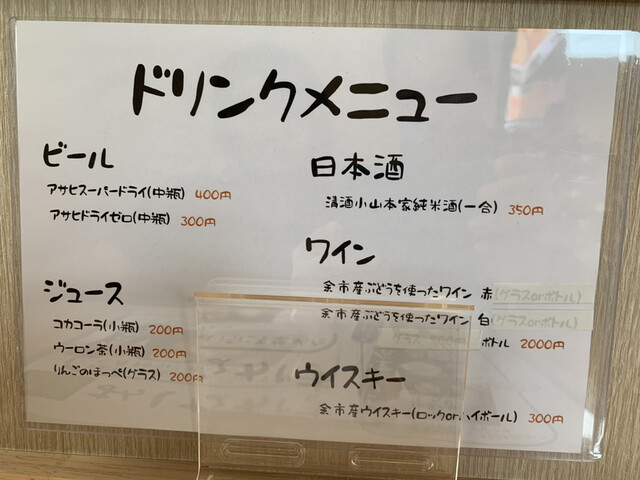 ドリンクメニュー
ビール
アサヒスーパードライ(中瓶) 400円
アサヒドライゼロ(中瓶) 300円
ジュース
コカコーラ(小瓶) 200円
ウーロン茶(小瓶) 200円
りんごのほっぺ(グラス) 200円
日本酒
清酒小山本家純米酒(一合) 350円
ワイン
余市産ぶどうを使ったワイン 赤(グラスorボトル)
余市産ぶどうを使ったワイン 白(グラスorボトル)
グラス ボトル 2000円
ウイスキー
余市産ウイスキー(ロックorハイボール) 300円